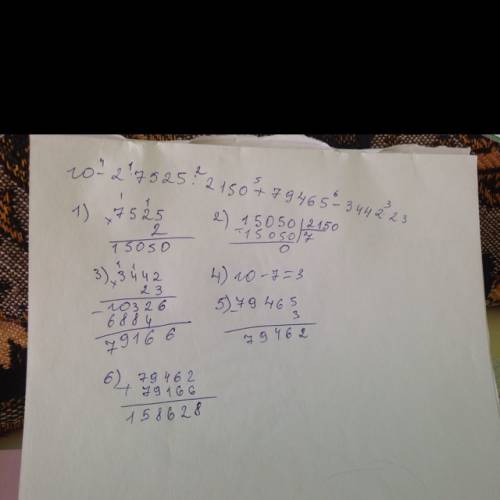 10 - 2 · 7525 : 2150 + 79465 - 3442 · 23
1) × 7525
2
15050
2) - 15050 | 2150
15050 | 7
0
3) × 3442
23
10326
6884
79166
4) 10 - 7 = 3
5) - 79465
3
79462
6) + 79462
79166
158628